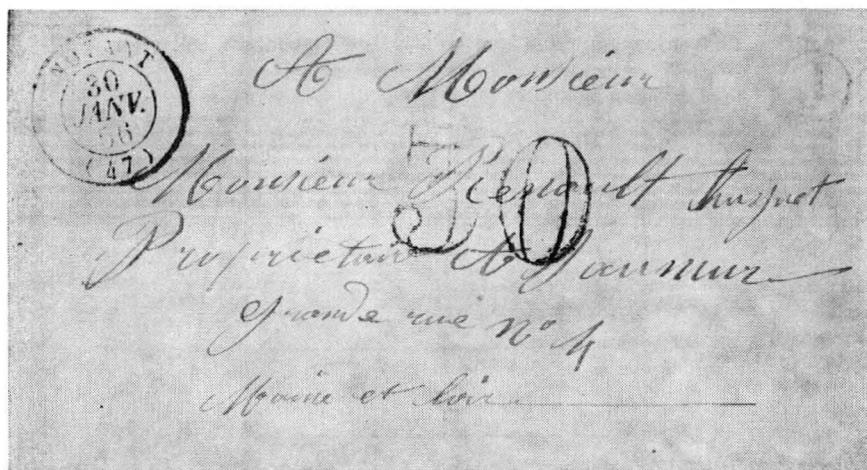 NOYANT
30
JANV.
56
(47)
A Monsieur
30
Monsieur
Propriétaire A Saumur
Grande rue n° 4
Maine et loir